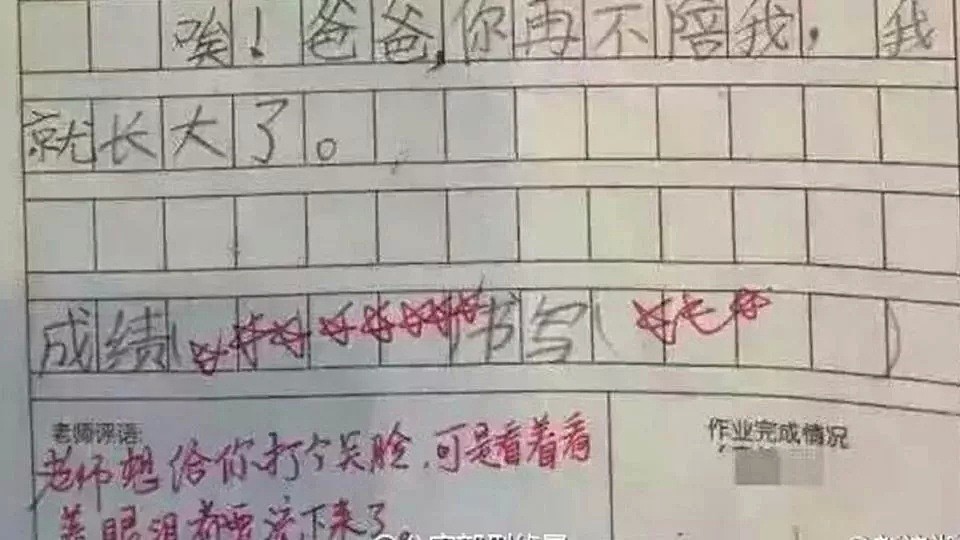 唉！爸爸，你再不陪我，我
就长大了。
成绩( 书写( )
老师评语:
老师想给你打个笑脸，可是看着看
着眼泪都要流下来了。
作业完成情况